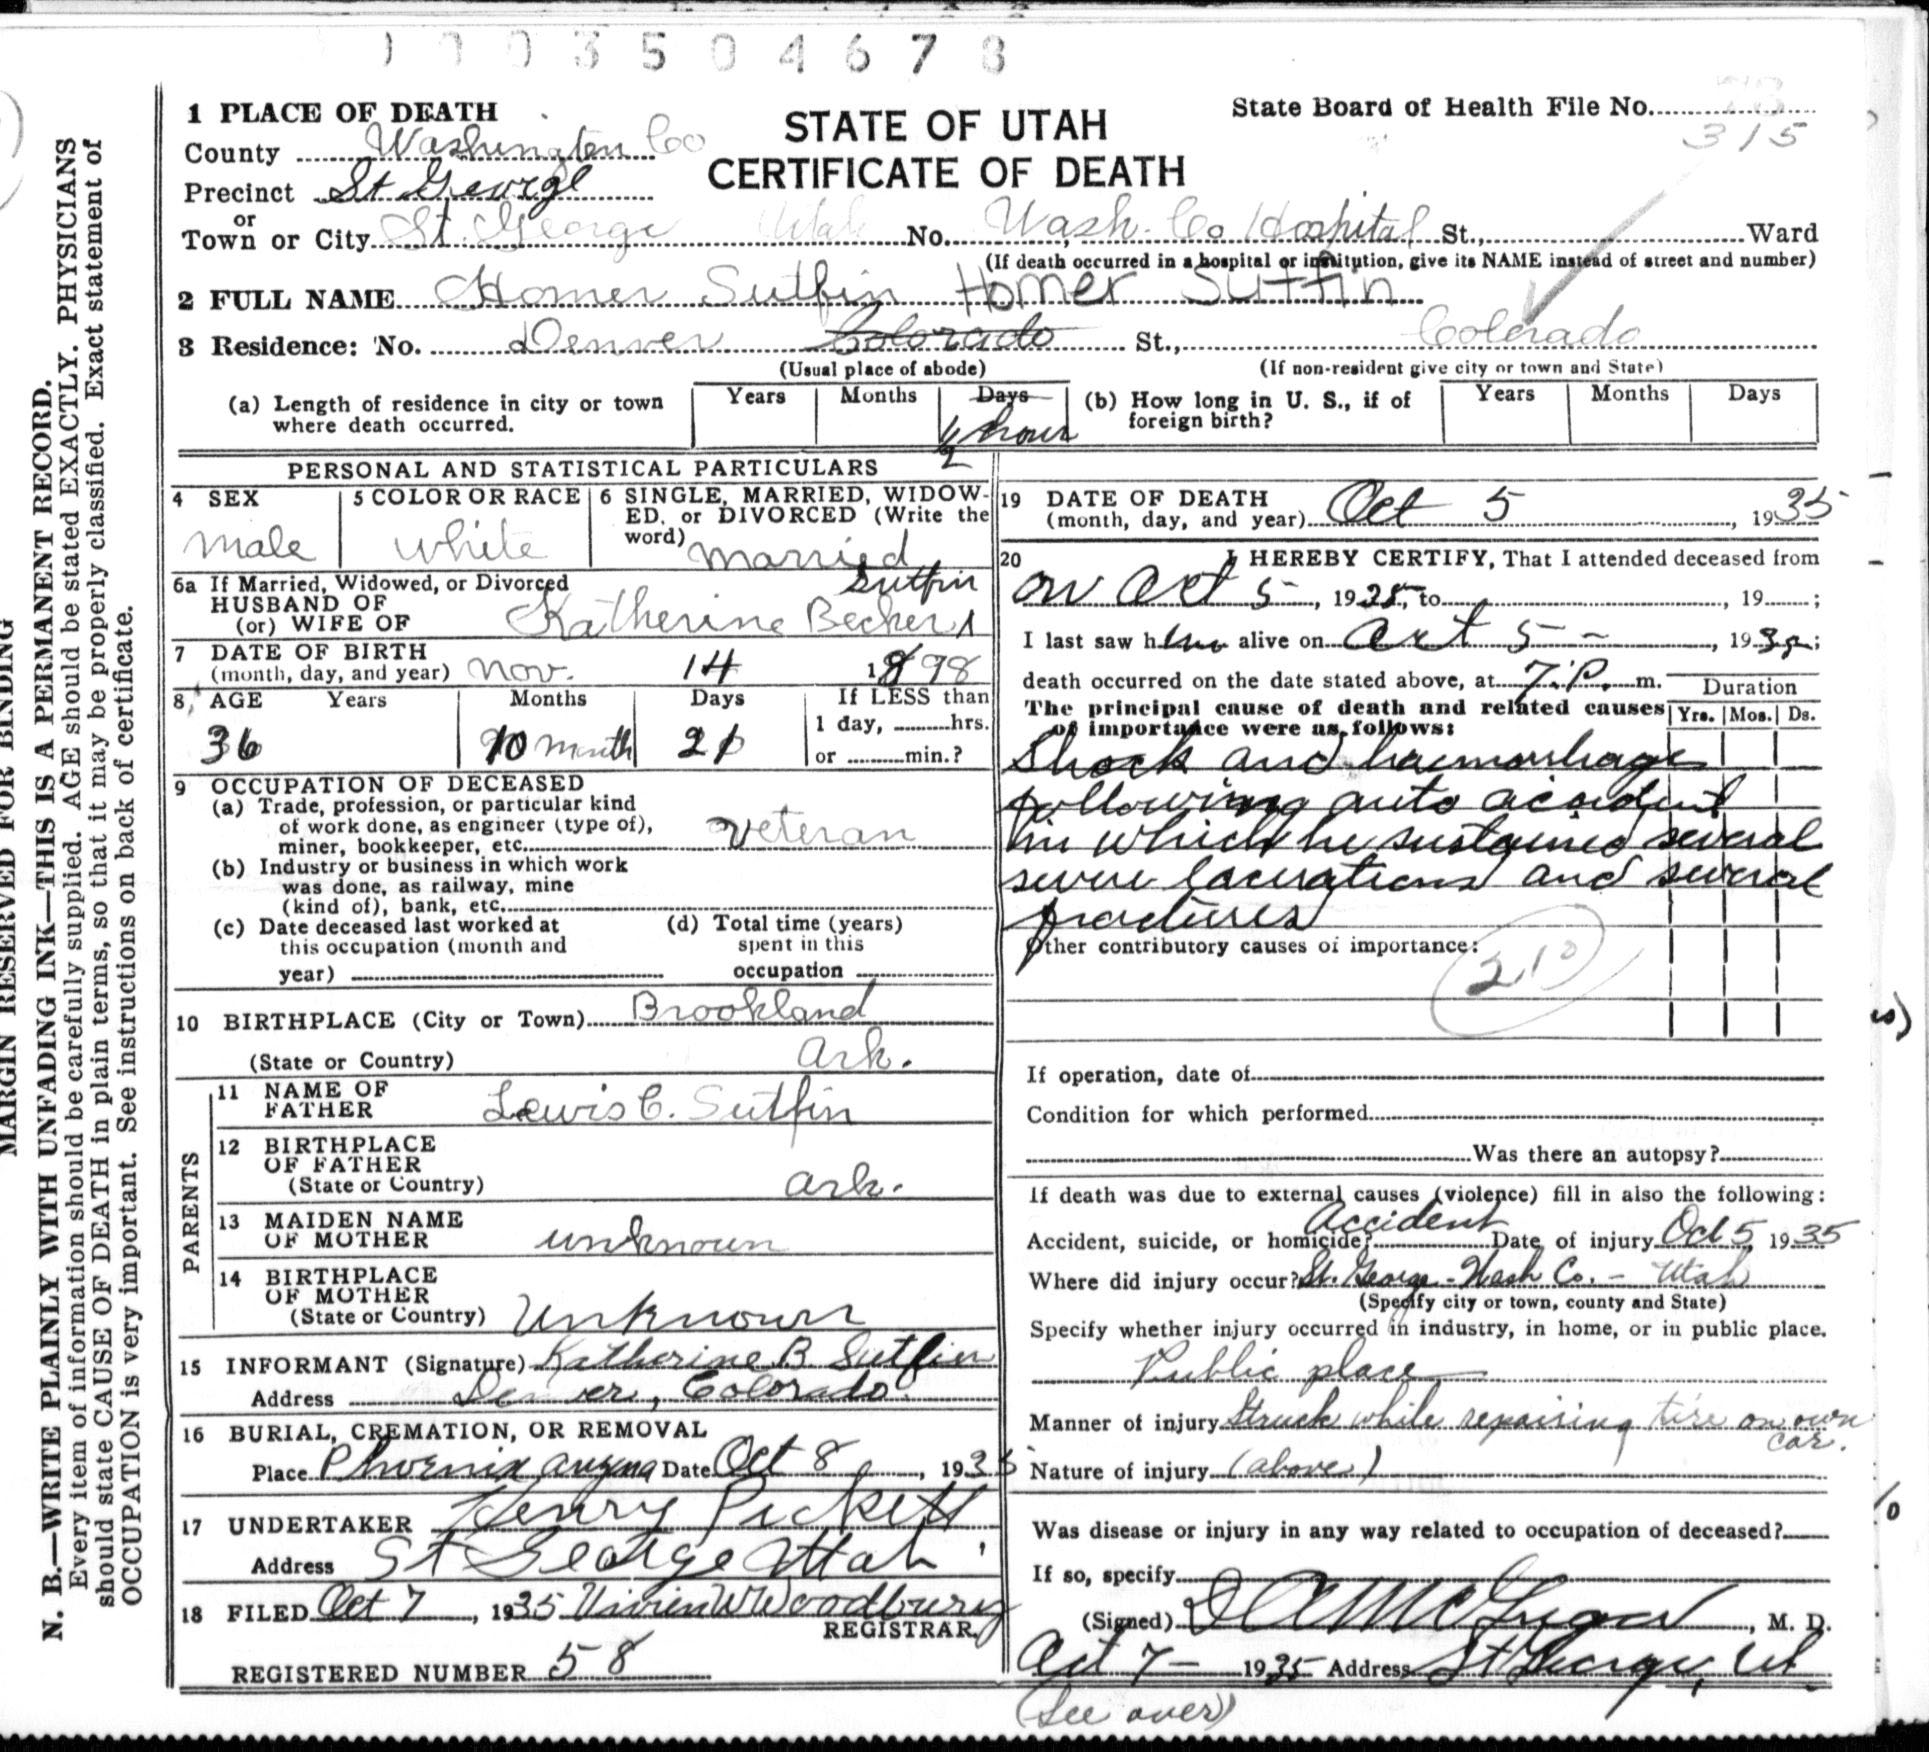 1003504678
1 PLACE OF DEATH
County Washington Co
Precinct St George
or
Town or City St. George Utah No. Wash. Co Hospital St., Ward
(If death occurred in a hospital or institution, give its NAME instead of street and number)
STATE OF UTAH
CERTIFICATE OF DEATH
State Board of Health File No.
315
2 FULL NAME Homer Sutfin Homer Sutfin
3 Residence: No. Denver Colorado St., Colorado
(Usual place of abode) (If non-resident give city or town and State)
(a) Length of residence in city or town where death occurred. Years Months Days 1/2 hour
(b) How long in U. S., if of foreign birth? Years Months Days
PERSONAL AND STATISTICAL PARTICULARS
4 SEX
male
5 COLOR OR RACE
white
6 SINGLE, MARRIED, WIDOW-
ED, or DIVORCED (Write the
word) married
6a If Married, Widowed, or Divorced
HUSBAND OF
(or) WIFE OF Katherine Becker Sutfin
7 DATE OF BIRTH
(month, day, and year) Nov. 14 1898
8 AGE Years Months Days If LESS than
36 10 month 21 1 day, hrs.
or min.?
9 OCCUPATION OF DECEASED
(a) Trade, profession, or particular kind
of work done, as engineer (type of),
miner, bookkeeper, etc. veteran
(b) Industry or business in which work
was done, as railway, mine
(kind of), bank, etc.
(c) Date deceased last worked at
this occupation (month and
year)
(d) Total time (years)
spent in this
occupation
10 BIRTHPLACE (City or Town) Brookland
(State or Country) Ark.
PARENTS
11 NAME OF
FATHER Lewis C. Sutfin
12 BIRTHPLACE
OF FATHER
(State or Country) Ark.
13 MAIDEN NAME
OF MOTHER unknown
14 BIRTHPLACE
OF MOTHER
(State or Country) Unknown
15 INFORMANT (Signature) Katherine B Sutfin
Address Denver, Colorado.
16 BURIAL, CREMATION, OR REMOVAL
Place Phoenix Arizona Date Oct 8, 1935
17 UNDERTAKER Henry Pickett
Address St George Utah
18 FILED Oct 7, 1935 Vivien W Woodbury
REGISTRAR.
REGISTERED NUMBER 58
19 DATE OF DEATH
(month, day, and year) Oct 5, 1935
20 I HEREBY CERTIFY, That I attended deceased from
on Oct 5, 1935, to , 19 ;
I last saw him alive on Oct 5 -, 1935;
death occurred on the date stated above, at 7:P. m.
The principal cause of death and related causes
of importance were as follows:
Duration
Yrs. Mos. Ds.
Shock and haemorrhage
following auto accident
in which he sustained several
severe lacerations and several
fractures
Other contributory causes of importance:
210
If operation, date of
Condition for which performed
Was there an autopsy?
If death was due to external causes (violence) fill in also the following:
Accident, suicide, or homicide? Accident Date of injury Oct 5, 1935
Where did injury occur? St. George - Wash Co. - Utah
(Specify city or town, county and State)
Specify whether injury occurred in industry, in home, or in public place.
Public place
Manner of injury Struck while repairing tire on own
car.
Nature of injury (above)
Was disease or injury in any way related to occupation of deceased?
If so, specify
(Signed) , M. D.
Oct 7 - 1935 Address St George, Ut.
(See over)
MARGIN RESERVED FOR BINDING
N. B.—WRITE PLAINLY WITH UNFADING INK—THIS IS A PERMANENT RECORD.
Every item of information should be carefully supplied. AGE should be stated EXACTLY. PHYSICIANS
should state CAUSE OF DEATH in plain terms, so that it may be properly classified. Exact statement of
OCCUPATION is very important. See instructions on back of certificate.